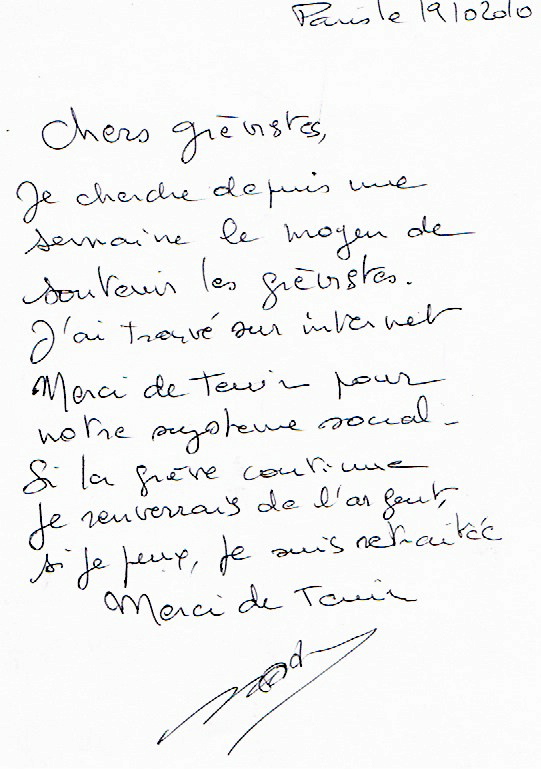 Paris le 19/10 2010
Chers grèvistes,
Je cherche depuis une
semaine le moyen de
soutenir les grèvistes.
J'ai trouvé sur internet
Merci de Tenir pour
notre systeme social.
Si la grève continue
Je renverrais de l'argent,
si je peux, je suis retraitée
Merci de Tenir